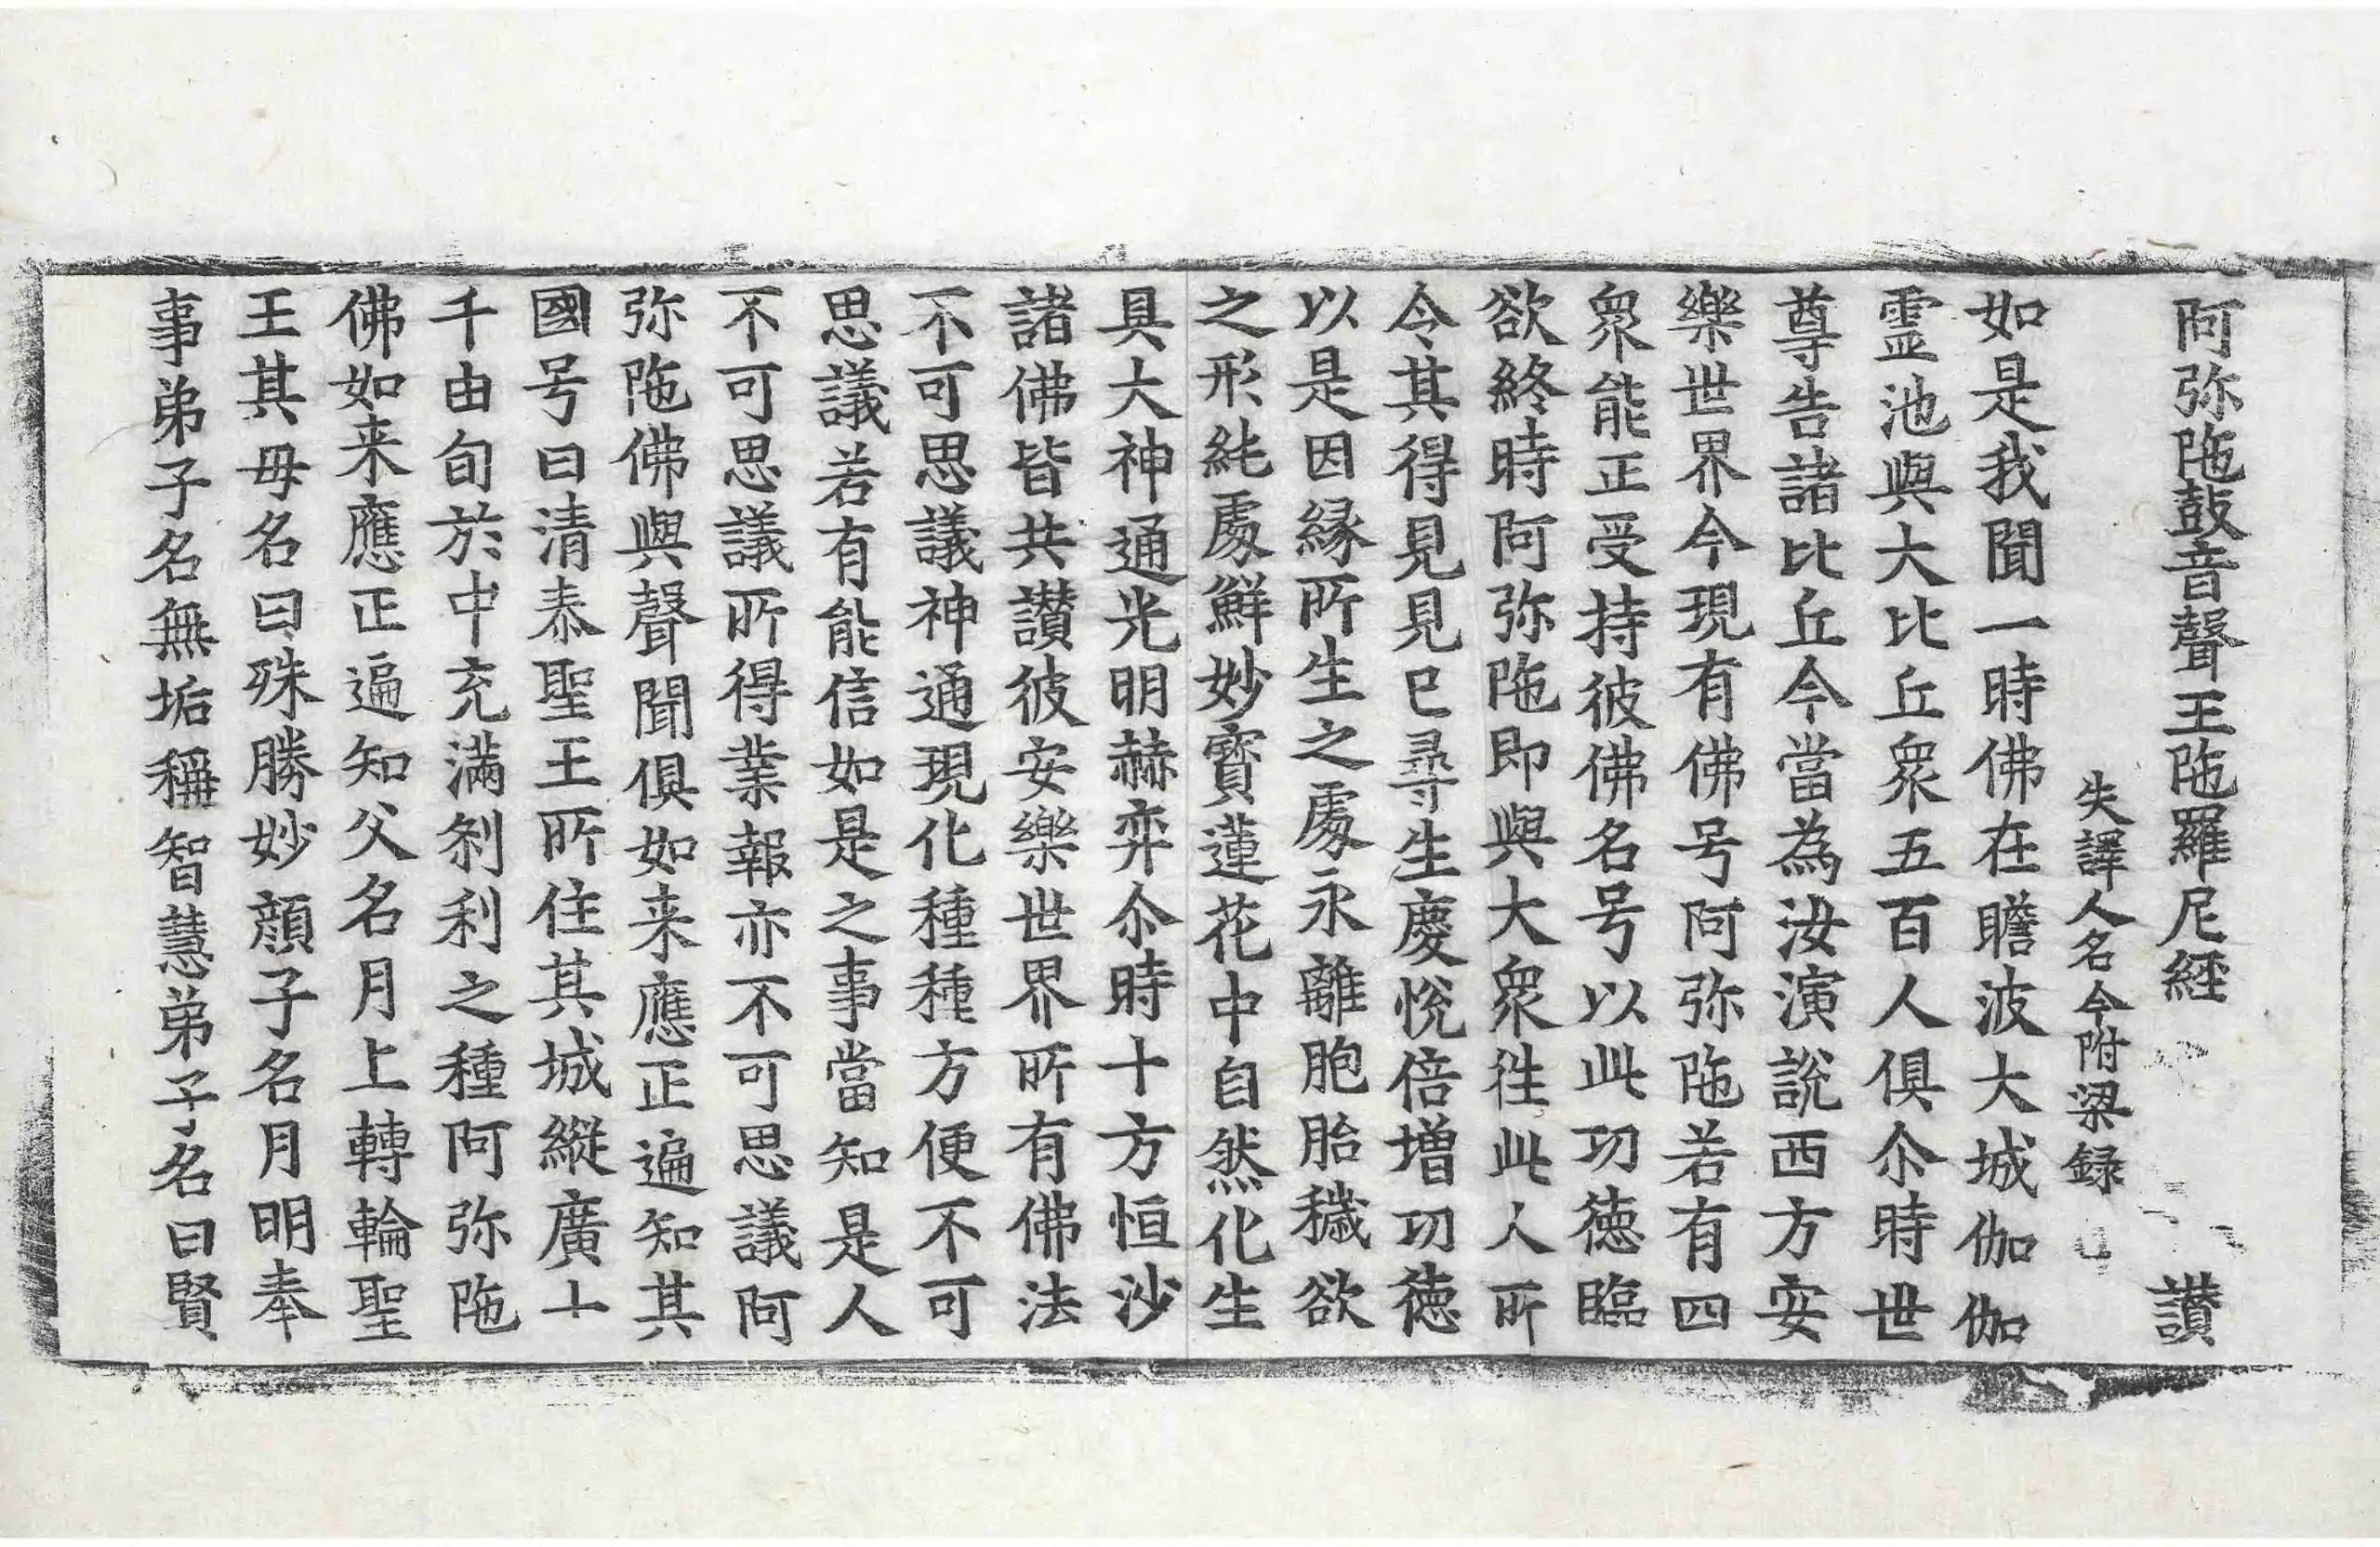 阿弥陁鼓音聲王陁羅尼經 讃
失譯人名今附梁録
如是我聞一時佛在瞻波大城伽伽
霊池與大比丘衆五百人俱尒時世
尊告諸比丘今當為汝演說西方安
樂世界今現有佛号阿弥陁若有四
衆能正受持彼佛名号以此功徳臨
欲終時阿弥陁即與大衆徃此人所
令其得見見已尋生慶悅倍增功徳
以是因緣所生之處永離胞胎穢欲
之形純處鮮妙寶蓮花中自然化生
具大神通光明赫弈尒時十方恒沙
諸佛皆共讃彼安樂世界所有佛法
不可思議神通現化種種方便不可
思議若有能信如是之事當知是人
不可思議所得業報亦不可思議阿
弥陁佛與聲聞俱如来應正遍知其
國号曰清泰聖王所住其城縱廣十
千由旬於中充滿剎利之種阿弥陁
佛如来應正遍知父名月上轉輪聖
王其母名曰殊勝妙顔子名月明奉
事弟子名無垢稱智慧弟子名曰賢